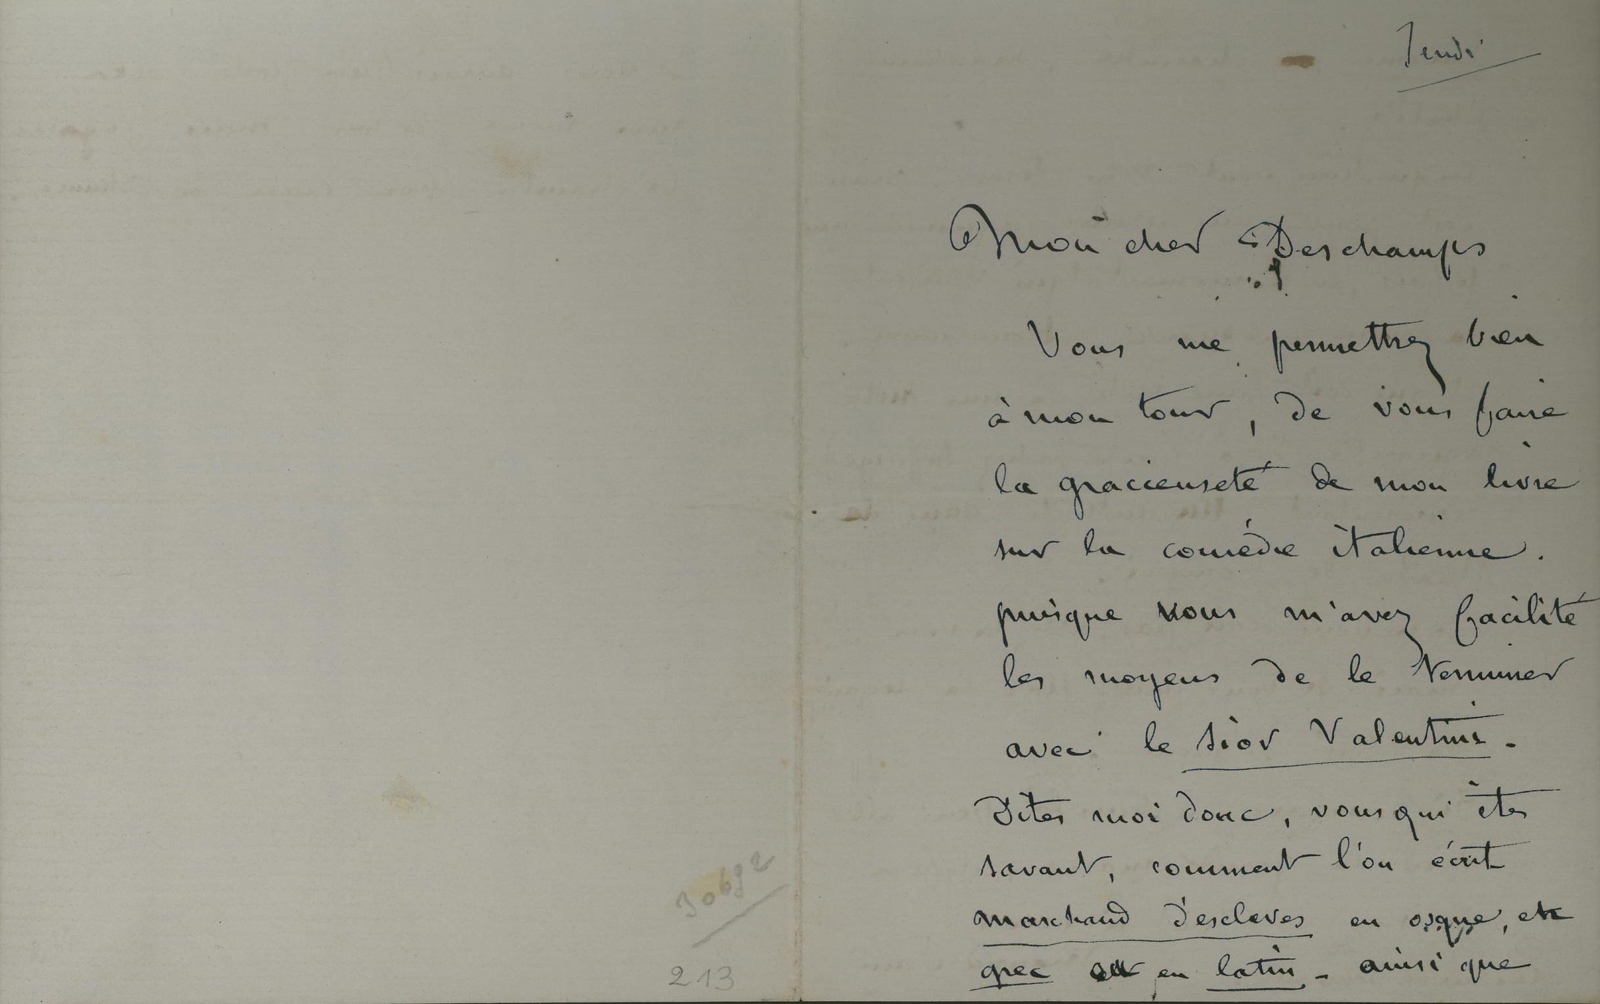 Jeudi
Mon cher Deschamps
Vous me permettrez bien
à mon tour, de vous faire
la gracieuseté de mon livre
sur la comédie italienne.
puisque vous m'avez facilité
les moyens de le terminer
avec le Sior Valentini -
Dites moi donc, vous qui êtes
savant, comment l'on écrit
marchand d'esclaves en osque, en
grec et en latin - ainsi que
30692
213